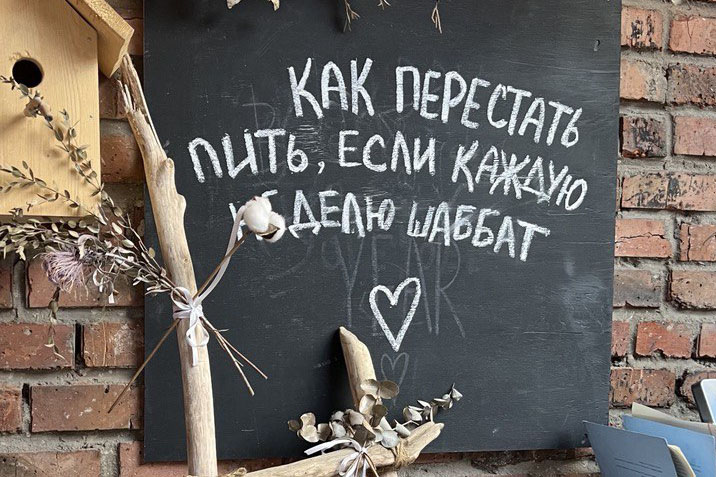 КАК ПЕРЕСТАТЬ
ПИТЬ, ЕСЛИ КАЖДУЮ
НЕДЕЛЮ ШАББАТ
YEAR